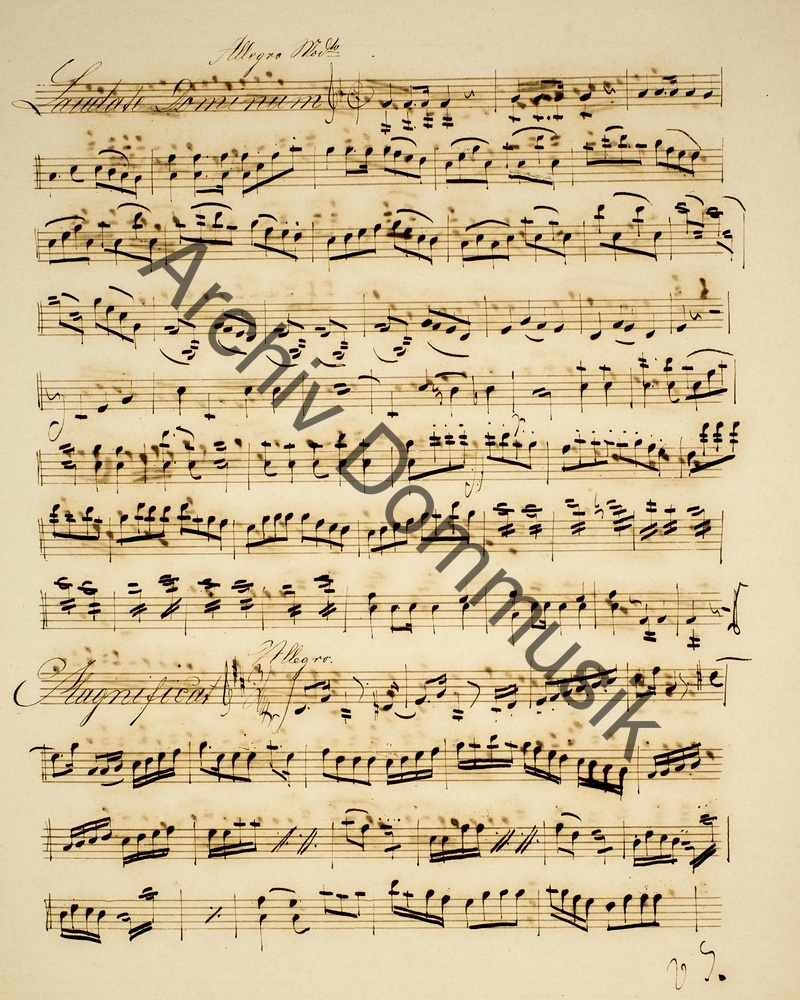 Allegro Mod.to
Laudate Dominum
Archiv Dommusik
Allegro.
Magnificat
V S.